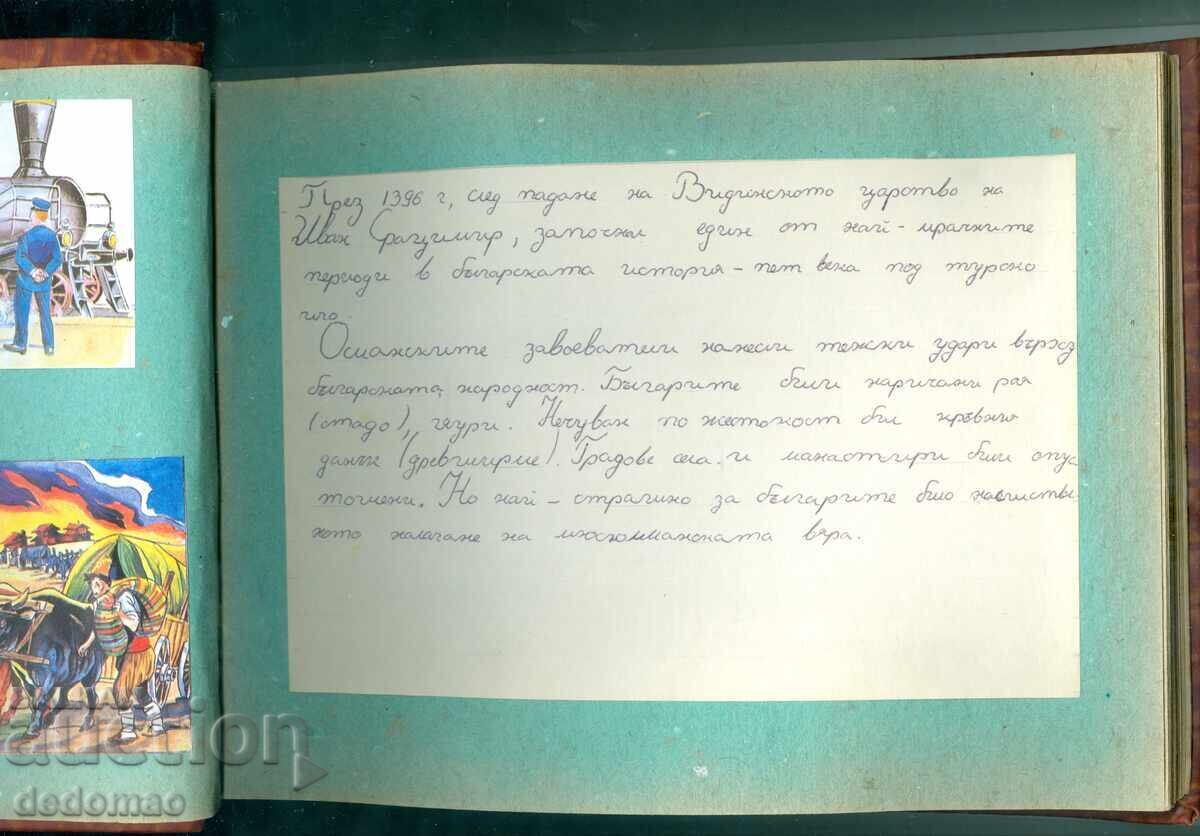 През 1396 г, след падане на Видинското царство на
Иван Срацимир, започнал един от най-мрачните
периоди в българската история - пет века под турско
иго.
Османските завоеватели нанесли тежки удари върху
българската народност. Българите били наричани рая
(стадо), гяури. Нечуван по жестокост бил кръвния
данък (девширме). Градове села и манастири били опус
тошени. Но най-страшно за българите било насилстве
ното налагане на мюсюлманската вяра.
auction
dedomao